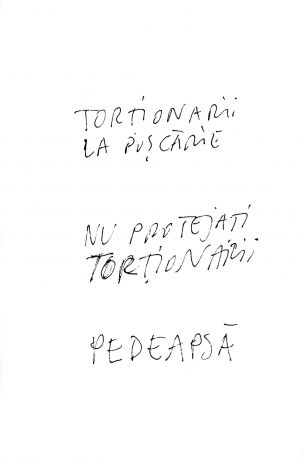 TORȚIONARII
LA PUȘCĂRIE
NU PROTEJATI
TORȚIONARII
PEDEAPSĂ